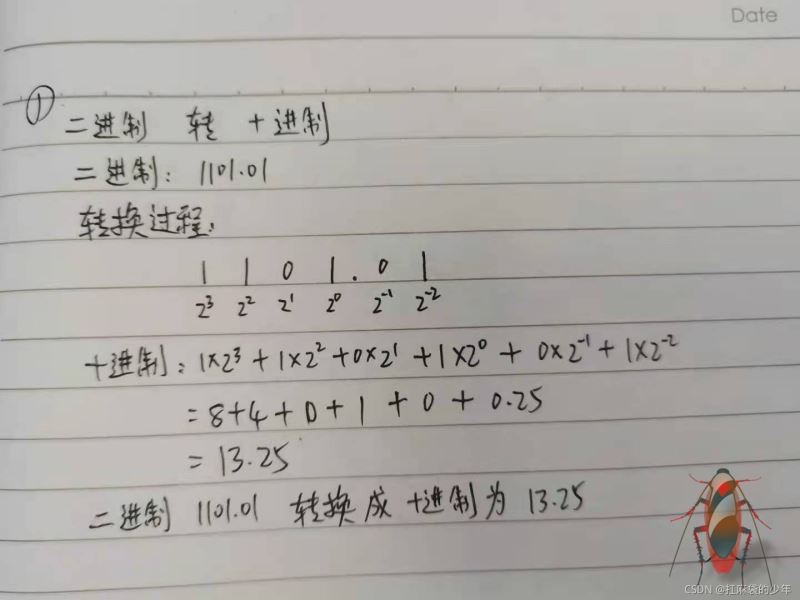 Date
① 二进制 转 十进制
二进制: 1101.01
转换过程:
1 1 0 1 . 0 1
2³ 2² 2¹ 2⁰ 2⁻¹ 2⁻²
十进制: 1×2³ + 1×2² + 0×2¹ + 1×2⁰ + 0×2⁻¹ + 1×2⁻²
= 8+4+0+1+0+0.25
= 13.25
二进制 1101.01 转换成 十进制为 13.25
CSDN @扛麻袋的少年